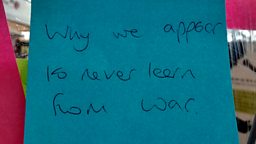 Why we appear
to never learn
from war